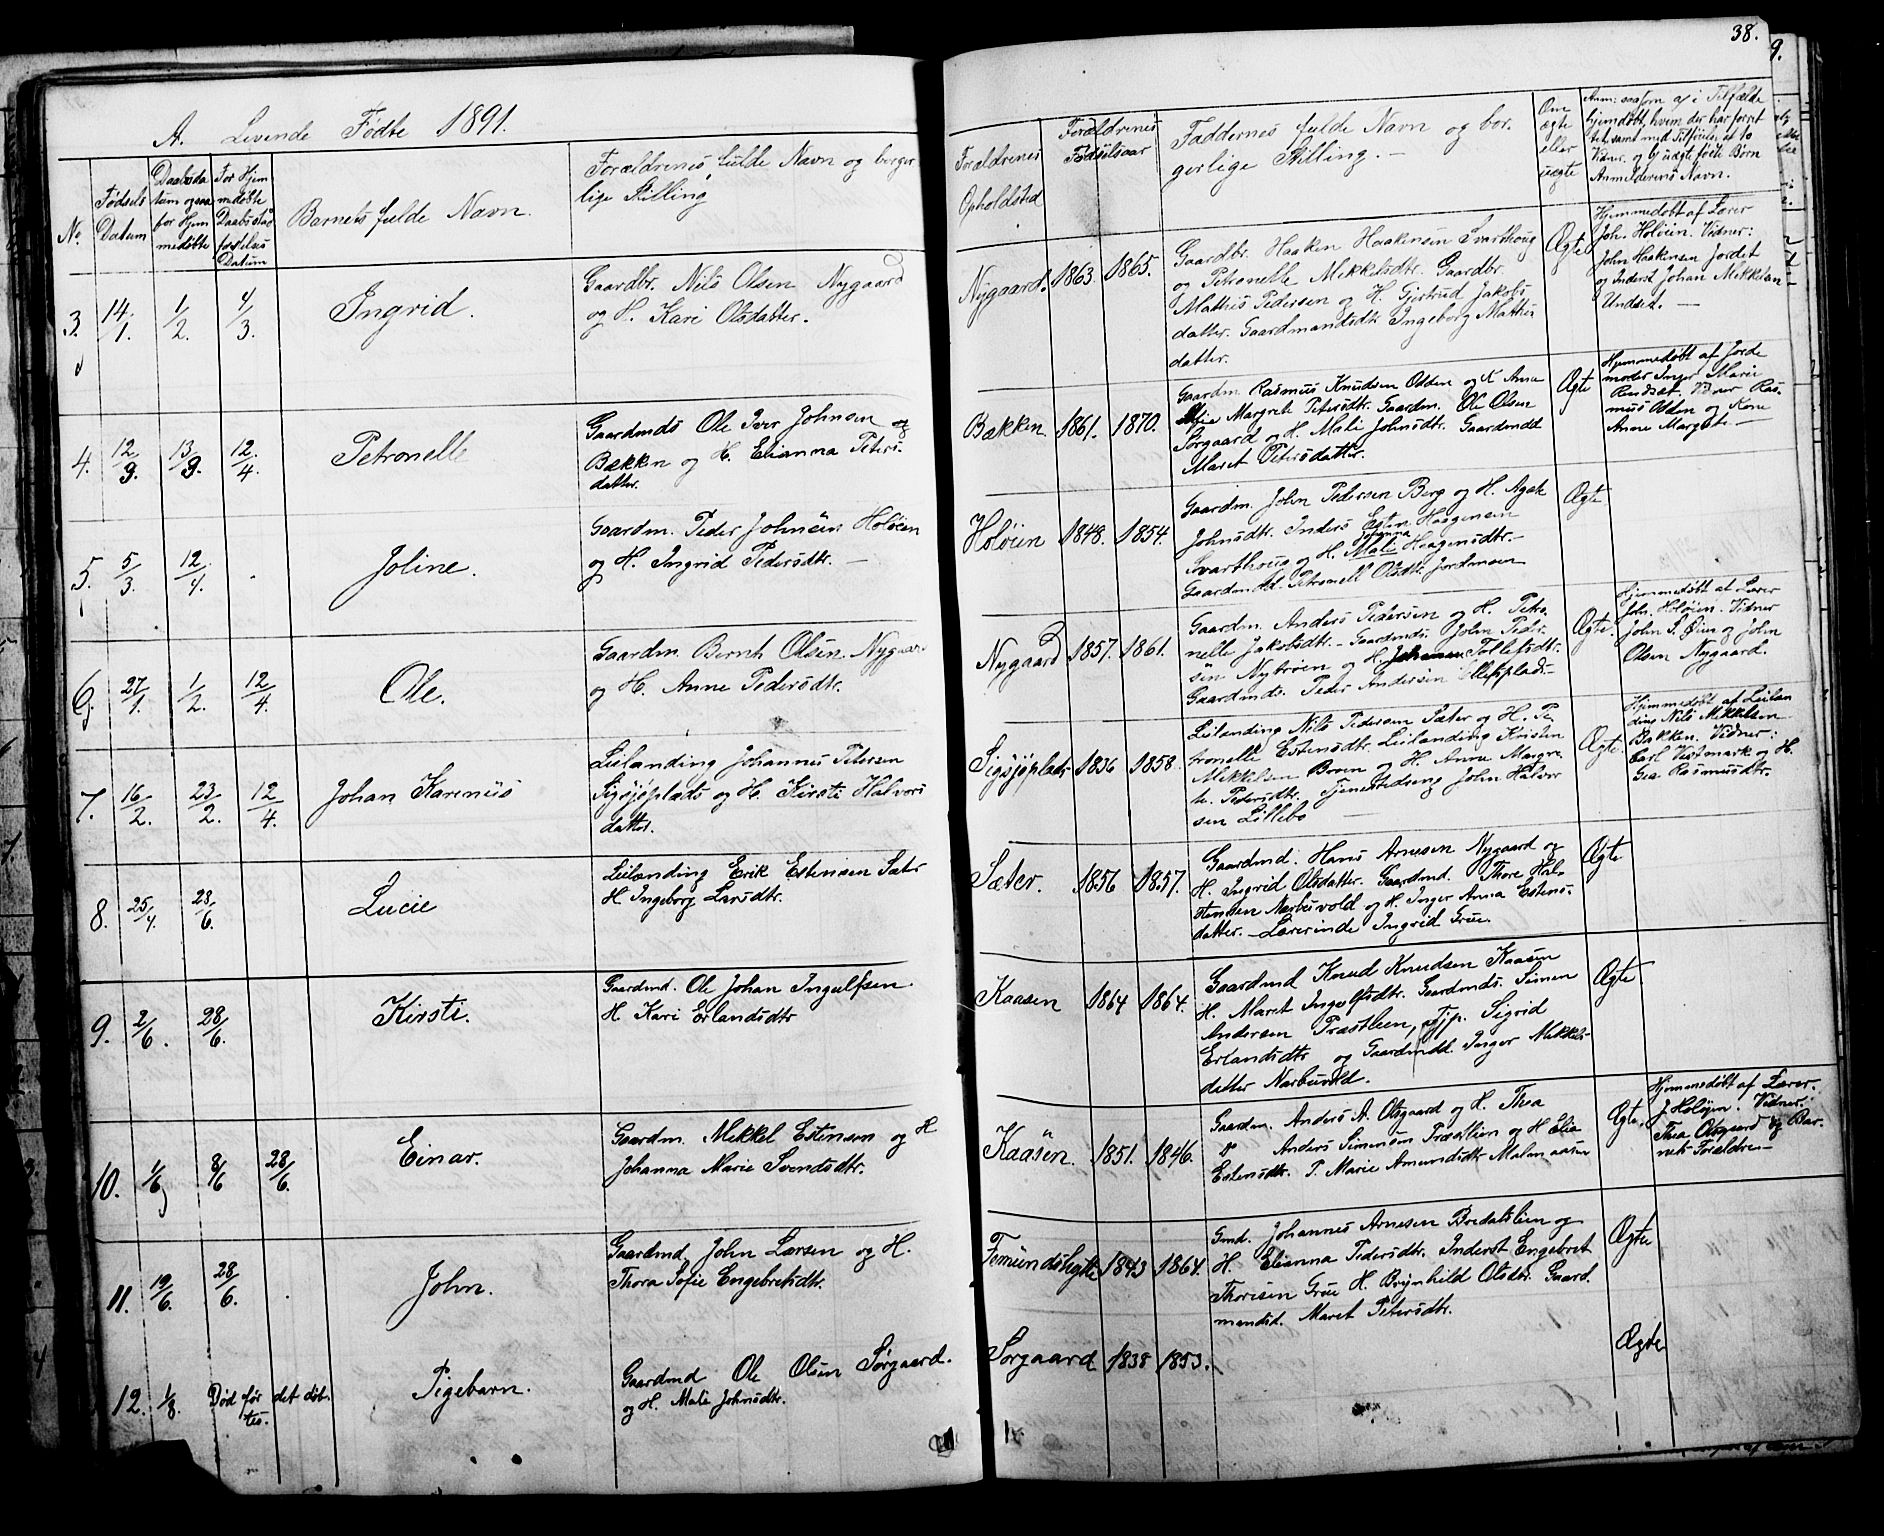 38.
9.
A. Levende Fødte 1891.
No.
Fødsels
Datum
Daabsda
tum ogsaa
for Hjem
medøbte
For Hjem
medøbte
Daabsstad
fæstelses
Datum
Barnets fulde Navn.
Forældrenes fulde Navn og borger
lige Stilling
Forældrenes
Opholdsted
Forældrenes
Fødselsaar
Faddernes fulde Navn og bor-
gerlige Stilling.
Om
ægte
eller
uægte
Anm: saasom a/ i Tilfælde
hjemdøbt, hvem der har forret
tet, samt med Tilføielse af to
Vidner, og b/ uægte fødte Børn
Anmelderens Navn.
3. 14/1 1/2 1/3 Ingrid.
Gaardbr. Nils Olsen Nygaard
og H. Kari Olsdatter.
Nygaard. 1863. 1865.
Gaardbr. Haaken Haakensen Svarthoug
og Petronelle Mikkelsdtr. Gaardbr.
Mathis Pedersen og H. Gjertrud Jakobs
datter. Gaardmandsdtr Ingeborg Mathis
datter.
Ægte
Hjemmedøbt af Lærer
Joh. Holøien. Vidner:
John Haakensen Jordet
og Inderst Johan Mikkelsen
4. 12/3. 13/3. 12/4. Petronelle
Gaardmds Ole Iver Johnsen og
Bækken og H. Elianna Peters-
datter.
Bækken 1861. 1870.
Gaardm. Rasmus Knudsen Odden og K Anne
Margrete Petersdtr. Gaardm. Ole Olsen
Sørgaard og H. Mali Johnsdtr. Gaardmdd
Maret Petersdatter.
Ægte
Hjemmedøbt af Jorde
moder Inger Marie
Vidner Ras-
mus Odden og Kone
Anne Margrete.
5. 5/3. 12/4. Joline.
Gaardm. Peder Johnsen Holøien
og H. Ingrid Pedersdtr.
Holøien 1848. 1854.
Gaardm. John Pedersen Berg og H. Agate
Johnsdtr. Inders Esten Haagensen
Johanna
Svarthoug og H. Mali Haagensdtr.
Gaardmdd. Petronell Olsdtr Jordmoen
Ægte
6. 27/1. 1/2. 12/4. Ole.
Gaardm. Bernt Olsen Nygaard
og H. Anne Pedersdtr.
Nygaard 1857. 1861.
Gaardm. Anders Pedersen og H. Petro-
nelle Jakobsdtr. Gaardmds. John Peder-
sen Nytrøen og H. Johanna Tollefsdtr.
Gaardmds. Peder Andersen
Ægte.
Hjemmedøbt af Lærer
Joh. Holøien. Vidner
John S. Øien og John
Olsen Nygaard.
7. 16/2. 23/2. 12/4. Johan Karenius
Leilænding Johannes Petersen
Sigsjøplads og H. Kirsti Halvors
datter.
Sigsjøplads 1856 1858.
Leilænding Nils Pedersen Sæter og H. Pe-
tronelle Estensdtr. Leilænding Kristen
Mikkelsen Broen og H. Anne Margre-
te Pedersdtr. Tjenestedreng John Halvor
sen Lillebo
Ægte.
Hjemmedøbt af Leilæn
ding Nils Mikkelsen
Bakken. Vidner:
Carl Vestmark og H.
Gea Rasmusdtr.
8. 25/4. 28/6. Lucie
Leilænding Erik Estensen Sæter
H Ingeborg Larsdtr.
Sæter. 1856 1857.
Gaardmd. Hans Arnesen Nygaard og
H. Ingrid Olsdatter. Gaardmd. Thore Hal-
stensen Narbuvold og H. Inger Anna Estens-
datter. Lærerinde Ingrid Grue.
Ægte
9. 2/6. 28/6. Kirsti.
Gaardmd. Ole Johan Ingulfsen.
H Kari Erlandsdtr
Kaasen 1864 1864.
Gaardmd Knud Knudsen Kaasen
H. Maret Ingulfsdtr. Gaardmds. Simen
Andersen Præstlien, Tjp. Sigrid
Erlandsdtr og Gaardmdd. Inger Mikkels-
datter Narbuvold.
Ægte
10. 1/6 8/6 28/6. Einar.
Gaardm. Mikkel Estensen og H
Johanna Marie Svendsdtr.
Kaasen. 1851. 1846.
Gaardm. Anders A. Olsgaard og H. Thea
Anders Simensen Præstlien og H Elia
Estensdtr. P. Marie Amundsdtr Malmaasen
Ægte,
Hjemmedøbt af Lærer.
J. Holøyen. Vidner:
Thea Olsgaard og Bar-
nets Forældre
11. 19/6. 28/6. John.
Gaardmd, John Larsen og H.
Thora Sofie Engebretsdtr.
Femundshytte 1843 1864.
Gmd. Johannes Arnesen Bredalslien og
H. Elianna Pedersdtr. Inderst Engebret
Thoresen Grue H. Brynhild Olsdtr. Gaard-
mandsd. Maret Petersdtr.
Ægte
12. 1/8. Død før det døb-
tes. Pigebarn.
Gaardmd Ole Olsen Sørgaard.
og H. Mali Johnsdtr.
Sørgaard 1838 1853.
Ægte